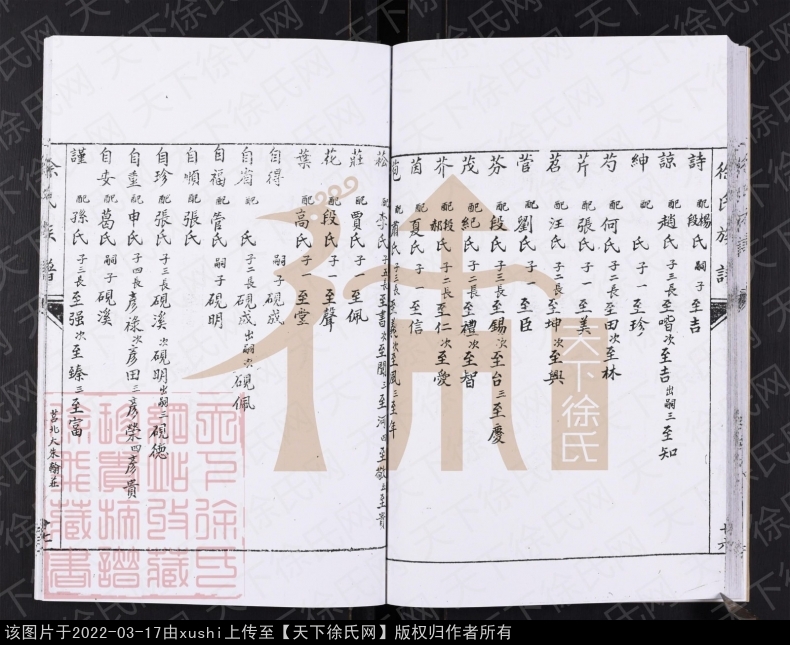 徐氏族譜
詩 配楊段氏 嗣子至吉
諒 配趙氏 子三長至唶次至吉出嗣三至知
紳 氏 子一至珍
芍 配何氏 子二長至田次至林
芹 配張氏 子一至美
茗 配汪氏 子二長至坤次至興
菅 配劉氏 子一至臣
芬 配段氏 子三長至錫次至台三至慶
茂 配紀氏 子二長至禮次至智
芥 配段郝氏 子二長至仁次至愛
茵 配夏氏 子一至信
配 氏 子三長至 次至風三至年
十六
菘 配李氏 子五長至書次至聞三至河四至敬五至貴
莊 配賈氏 子一至佩
花 配段氏 子一至聲
葉 配高氏 子一至堂
自得 嗣子硯成
自省 氏 子二長硯成出嗣次硯佩
自福 配管氏 嗣子硯明
自順 配張氏
自珍 配張氏 子三長硯溪次硯明出嗣三硯德
自重 配申氏 子四長彥淥次彥田三彥榮四彥貴
自安 配葛氏 嗣子硯溪
謹 配孫氏 子三長至强次至臻三至富
徐氏族譜
莒北大朱翰莊
十七
天下徐氏
天下徐氏網站收藏
珍貴捕譜
徐飛藏書
天下徐氏网
该图片于2022-03-17由xushi上传至【天下徐氏网】版权归作者所有